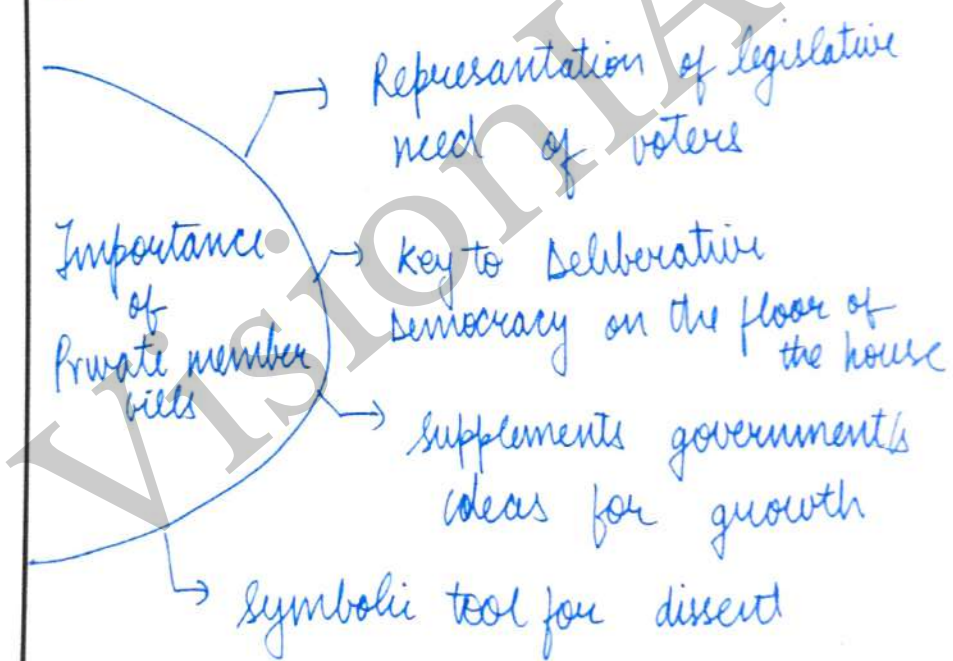 Importance
of
Private member
bills
Represantation of legislative
need of voters
Key to Deliberative
Democracy on the floor of
the house
Supplements government's
ideas for growth
Symbolic tool for dissent
VisionIA